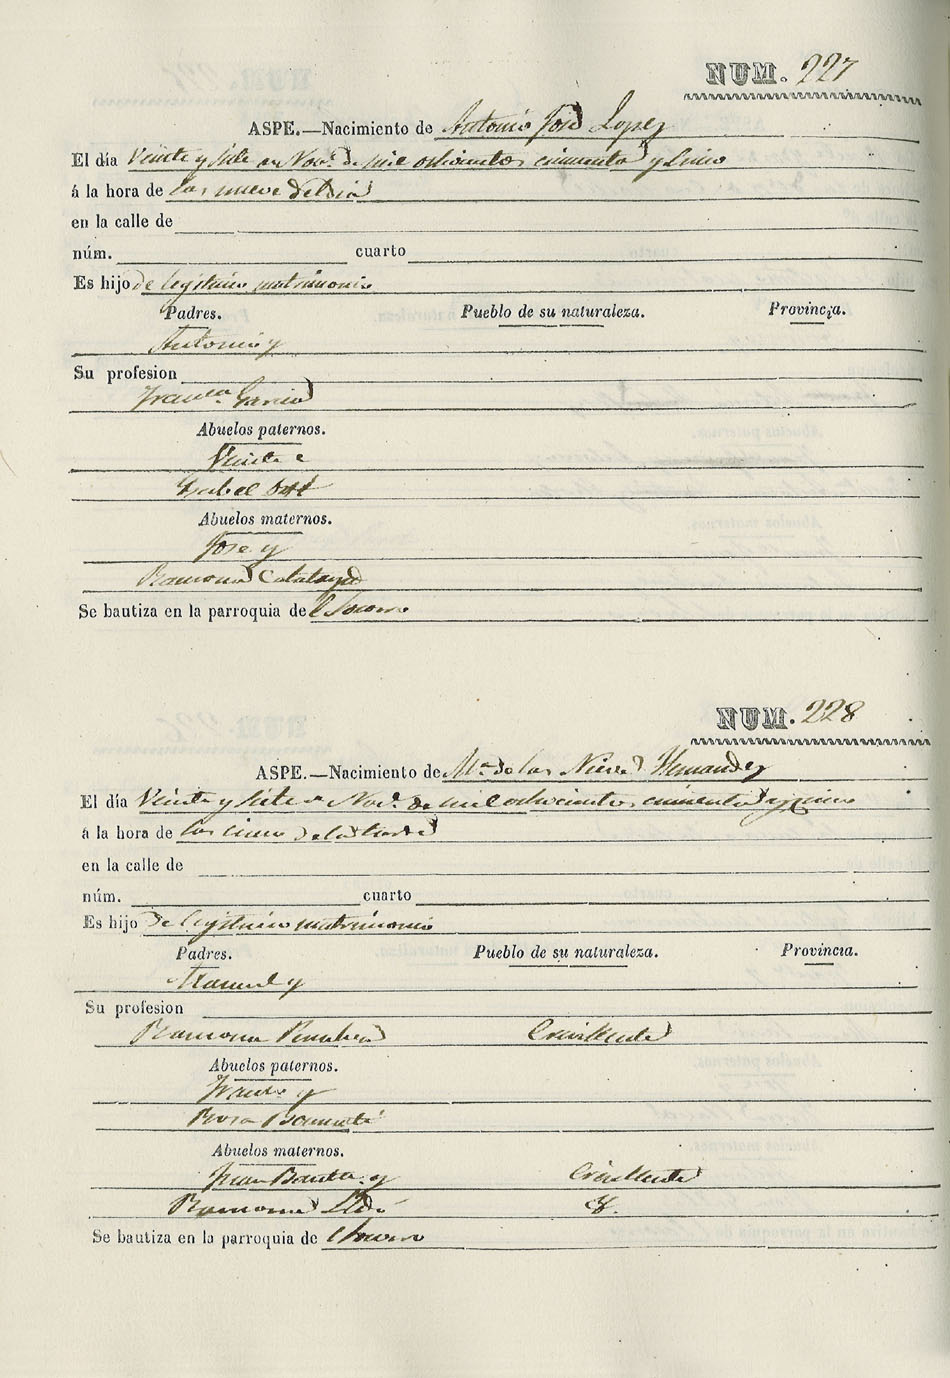 NUM. 227
ASPE.—Nacimiento de Antonio José Lopez
El día Veinte y siete de Nov.e de mil ochocientos cincuenta y cinco
á la hora de las nueve del dia
en la calle de
núm. cuarto
Es hijo de legitimo matrimonio
Padres. Pueblo de su naturaleza. Provincia.
Antonio y
Su profesion
Fran.ca Garcia
Abuelos paternos.
Vicente e
Isabel
Abuelos maternos.
Jose y
Ramona Calatayud
Se bautiza en la parroquia de el Socorro
NUM. 228
ASPE.—Nacimiento de M.a de las Nieves Hernandez
El día Veinte y siete de Nov.e de mil ochocientos cincuenta y cinco
á la hora de las cinco de la tarde
en la calle de
núm. cuarto
Es hijo de legitimo matrimonio
Padres. Pueblo de su naturaleza. Provincia.
Manuel y
Su profesion
Ramona Crevillente
Abuelos paternos.
y
Rosa
Abuelos maternos.
Juan Bauta. y Crevillente
Ramona
Se bautiza en la parroquia de el Socorro